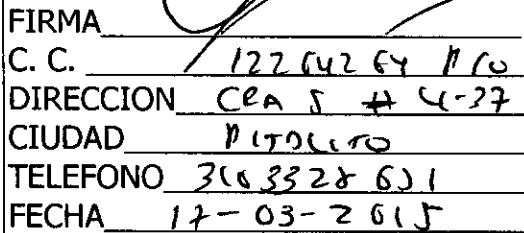 FIRMA
C. C. 12264264 Pto
DIRECCION CRA 5 # 4-37
CIUDAD PITALITO
TELEFONO 3103328651
FECHA 17-03-2015